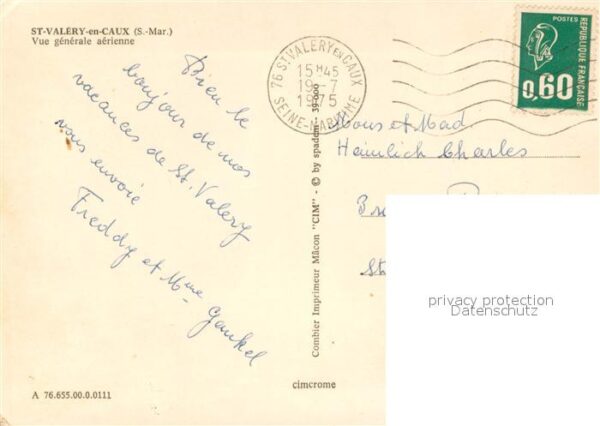 ST-VALÉRY-en-CAUX (S.-Mar.)
Vue générale aérienne
Bien le
bonjour de nos
vacances de St. Valery
vous envoie
Freddy et Mme Gankel
76 ST VALERY EN CAUX
15H45
19-7
1975
SEINE-MARITIME
POSTES
REPUBLIQUE FRANÇAISE
0,60
Mous et Mad
Heinlich Charles
St
Combier Imprimeur Mâcon "CIM" - © by spadem - 39 000
cimcrome
A 76.655.00.0.0111
privacy protection
Datenschutz